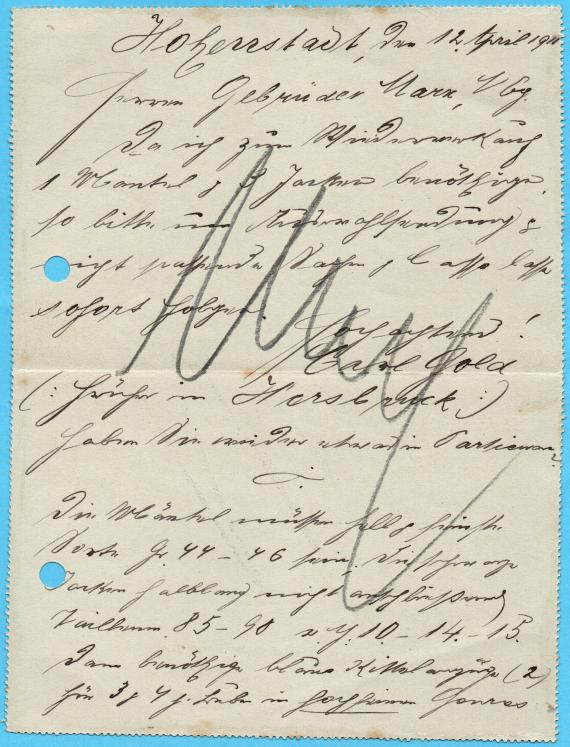 Hoherrstadt, den 12. April 19
Herren Gebrüder Marx, Vbg.
Da ich zum Wiederverkauf
1 Mantel & 3 Jacken benöthige,
so bitte um Auswahlsendung &
nicht passende Sachen & Cassa lasse
sofort folgen.
Hochachtend!
Carl Gold
(: früher in Hersbruck :)
haben Sie wieder etwas in Partiewaare?
Die Mäntel müssen hell & feinste
Sorte Gr. 44 - 46 sein. Die schwarze
Jacken halblang nicht anschließend
Taillenw. 85 - 90 10 - 14. - 15.
Dann benöthige blaue Kittelanzüge (2)
für 3 & 4 j. Bube in hochfeinen Genres